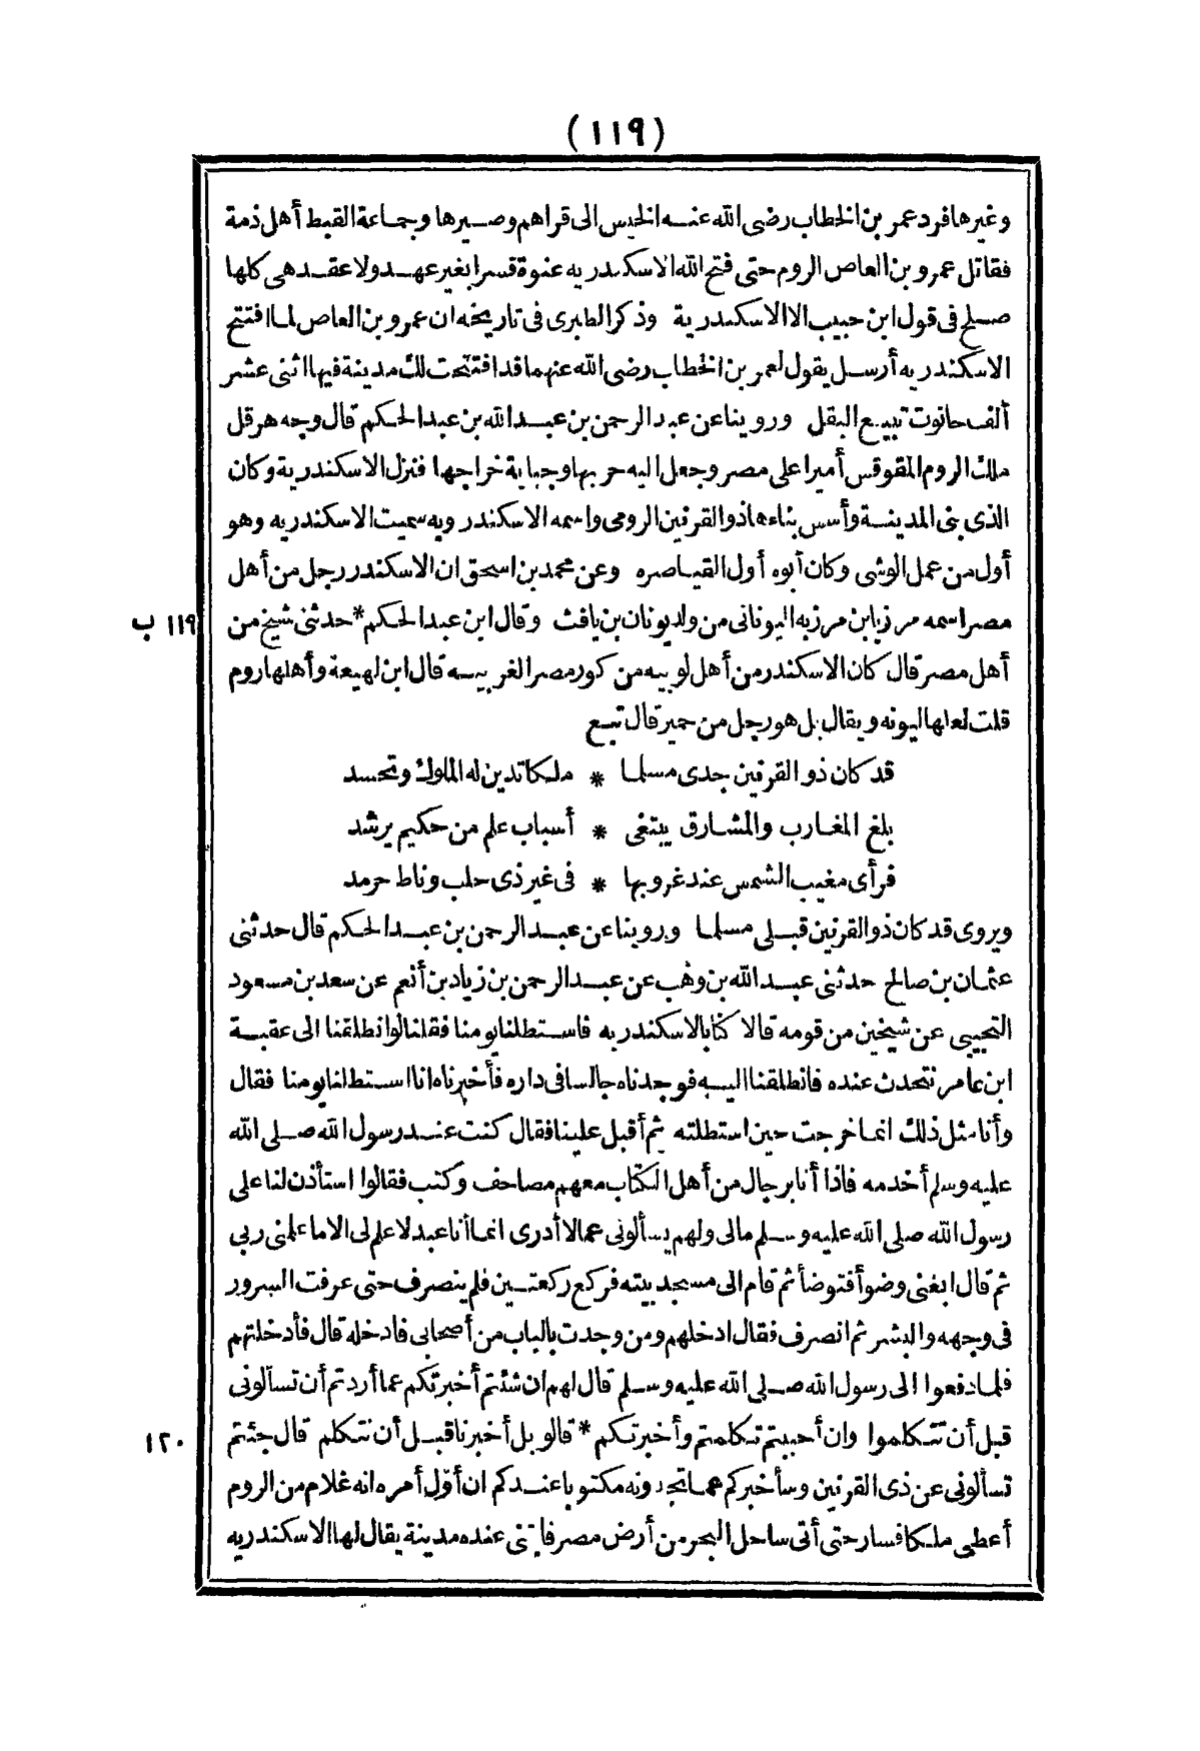 (١١٩)
وغيرها فرد عمر بن الخطاب رضى الله عنه الخيس الى قراهم وصيرها وجماعة القبط أهل ذمة
فقاتل عمرو بن العاص الروم حتى فتح الله الاسكندريه عنوة قسرا بغير عهد ولا عقد هى كلها
صلح فى قول ابن حبيب الا الاسكندرية وذكر الطبرى فى تاريخه ان عمرو بن العاص لما افتتح
الاسكندريه أرسل يقول لعمر بن الخطاب رضى الله عنهما قد افتتحت لك مدينة فيها اثنى عشر
ألف حانوت تبيع البقل وروينا عن عبد الرحمن بن عبد الله بن عبد الحكم قال وجه هرقل
ملك الروم المقوقس أميرا على مصر وجعل اليه حربها وجباية خراجها فنزل الاسكندرية وكان
الذى بنى المدينة وأسس بناءها ذو القرنين الرومى واسمه الاسكندر وبه سميت الاسكندريه وهو
أول من عمل الوشى وكان أبوه أول القياصره وعن محمد بن اسحق ان الاسكندر رجل من أهل
مصر اسمه مرزبا بن مرزبه اليونانى من ولد يونان بن يافث وقال ابن عبد الحكم * حدثنى شيخ من
١١٩ ب
أهل مصر قال كان الاسكندر من أهل لوبيه من كور مصر الغربيه قال ابن لهيعة وأهلها روم
قلت لعلها اليونه ويقال بل هو رجل من حمير قال تبع
قد كان ذو القرنين جدى مسلما * ملكا تدين له الملوك وتحسد
بلغ المغارب والمشارق يبتغى * أسباب علم من حكيم يرشد
فرأى مغيب الشمس عند غروبها * فى غير ذى حلب وناط حرمد
ويروى قد كان ذو القرنين قبلى مسلما وروينا عن عبد الرحمن بن عبد الحكم قال حدثنى
عثمان بن صالح حدثنى عبد الله بن وهب عن عبد الرحمن بن زياد بن أنعم عن سعد بن مسعود
التجيبى عن شيخين من قومه قالا كنا بالاسكندريه فاستطلنا يومنا فقلنا لو انطلقنا الى عقبة
ابن عامر نتحدث عنده فانطلقنا اليه فوجدناه جالسا فى داره فأخبرناه انا استطلنا يومنا فقال
وأنا مثل ذلك انما خرجت حين استطلته ثم أقبل علينا فقال كنت عند رسول الله صلى الله
عليه وسلم أخدمه فاذا أنا برجال من أهل الكتاب معهم مصاحف وكتب فقالوا استأذن لنا على
رسول الله صلى الله عليه وسلم مالى ولهم يسألونى عما لا أدرى انما أنا عبد لا علم لى الا ما علمنى ربى
ثم قال ابغنى وضوأ فتوضأ ثم قام الى مسجد بيته فركع ركعتين فلم ينصرف حتى عرفت السرور
فى وجهه والبشر ثم انصرف فقال ادخلهم ومن وجدت بالباب من أصحابى فادخله قال فأدخلتهم
فلما دفعوا الى رسول الله صلى الله عليه وسلم قال لهم ان شئتم أخبرتكم عما أردتم أن تسألونى
قبل أن تتكلموا وان أحببتم تكلمتم وأخبرتكم * قالو بل أخبرنا قبل أن نتكلم قال جئتم
١٢٠
تسألونى عن ذى القرنين وسأخبركم عما تجدونه مكتوبا عندكم ان أول أمره انه غلام من الروم
أعطى ملكا فسار حتى أتى ساحل البحر من أرض مصر فابتنى عنده مدينة يقال لها الاسكندريه